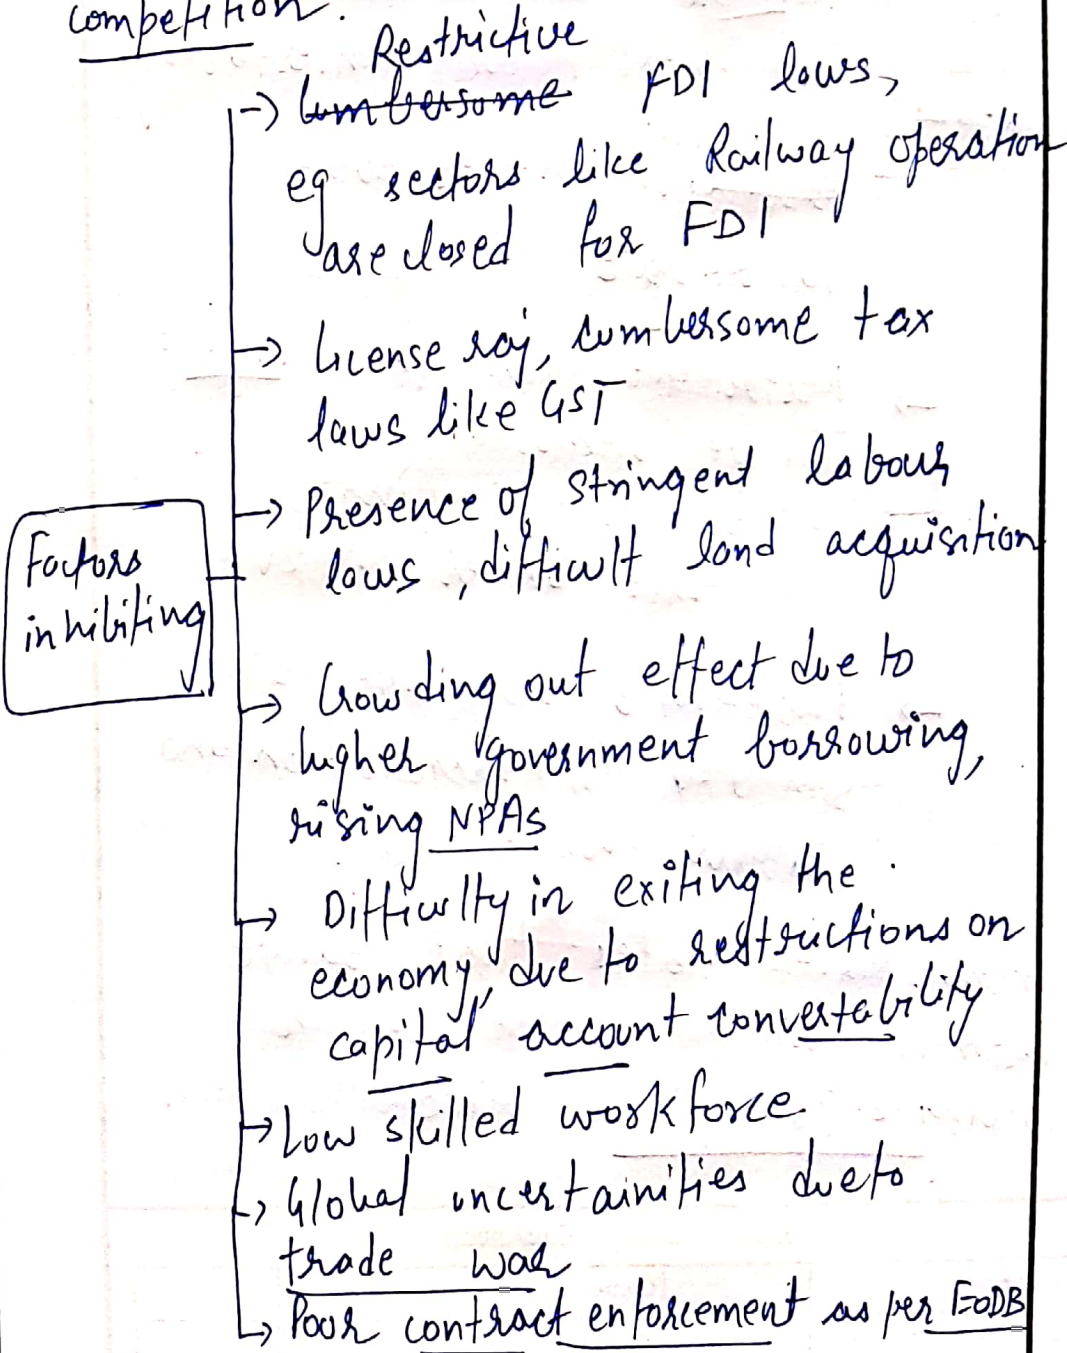 competition.
Restrictive
Cumbersome FDI laws,
eg sectors like Railway operation
are closed for FDI
→ license raj, cumbersome tax
laws like GST
→ Presence of stringent labour
laws, difficult land acquisition
Factors
inhibiting
→ Crowding out effect due to
higher government borrowing,
rising NPAs
→ Difficulty in exiting the
economy, due to restructions on
capital account convertability
→ Low skilled workforce
→ Global uncertainities due to
trade war
→ Poor contract enforcement as per EoDB